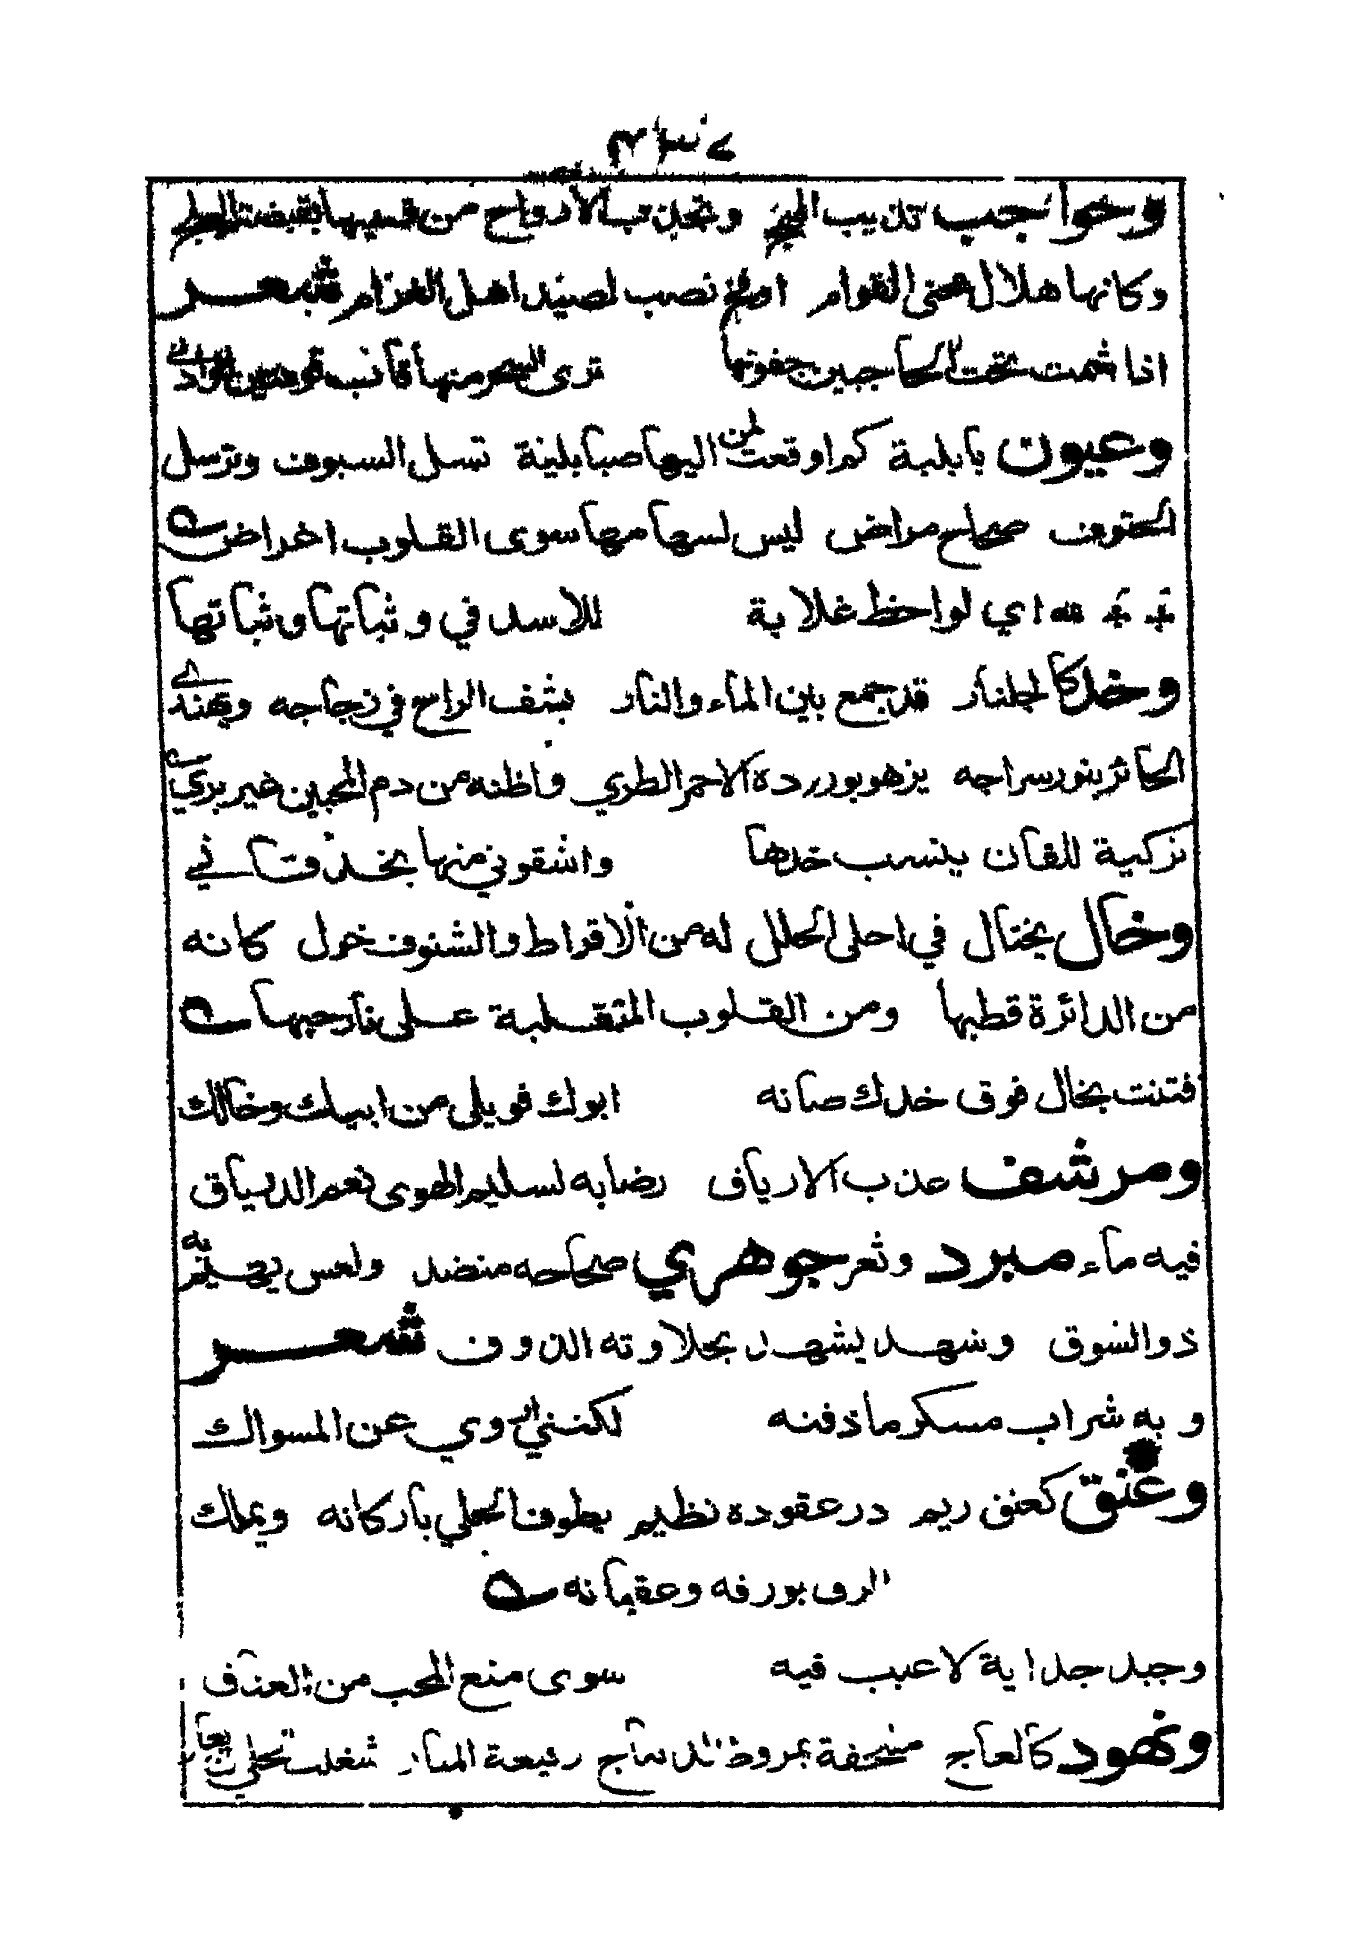 وحواجب تذيب المهج وتجذب الارواح من قسيها بقبضة
وكانها هلال محنى القوام او فخ نصب لصيد اهل الغرام شعر
اذا شمت تحت الحاجبين جفونها ترى السحر منها قاب قوسين او ادنى
وعيون بابلية كم اوقعت من اليها صبا بلية تسل السيوف وترسل
الحتوف صحاح مراض ليس لسهامها سوى القلوب اغراض
اي لواحظ غلابة للاسد في وثباتها وثباتها
وخد كالجلنار قد جمع بين الماء والنار يشف الراح في زجاجه ويهتدي
الحائر بنور سراجه يزهو بورده الاحمر الطري واظنه من دم المحبين غير بري
تركية للقان ينسب خدها واشقوتي منها بخد قاني
وخال يختال في احلى الحلل له من الاقراط والشنوف خول كانه
من الدائرة قطبها ومن القلوب المتقلبة على نار حبها
فتنت بخال فوق خدك صانه ابوك فويلى من ابيك وخالك
ومرشف عذب الارياف رضابه لسليم الهوى نعم الدرياق
فيه ماء مبرد وثغر جوهري صحاحه منضد ولعس
ذو الشوق وشهد يشهد بحلاوته الذوق شعر
وبه شراب مسكر ما ذقته لكنني اروي عن المسواك
وعنق كعنق ريم در عقوده نظيم يطوف الحلي باركانه ويملك
الرق بورقه وعقيانه
وجيد جداية لا عيب فيه سوى منع المحب من العناق
ونهود كالعاج رفيعة شغلت